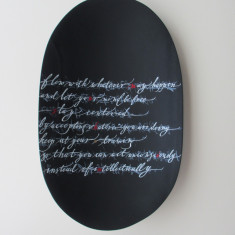 flow with whatever may happen
and let your mind be free
stay centered
by accepting whatever you are doing
keep at your training
so that you can act
instead of intellectually